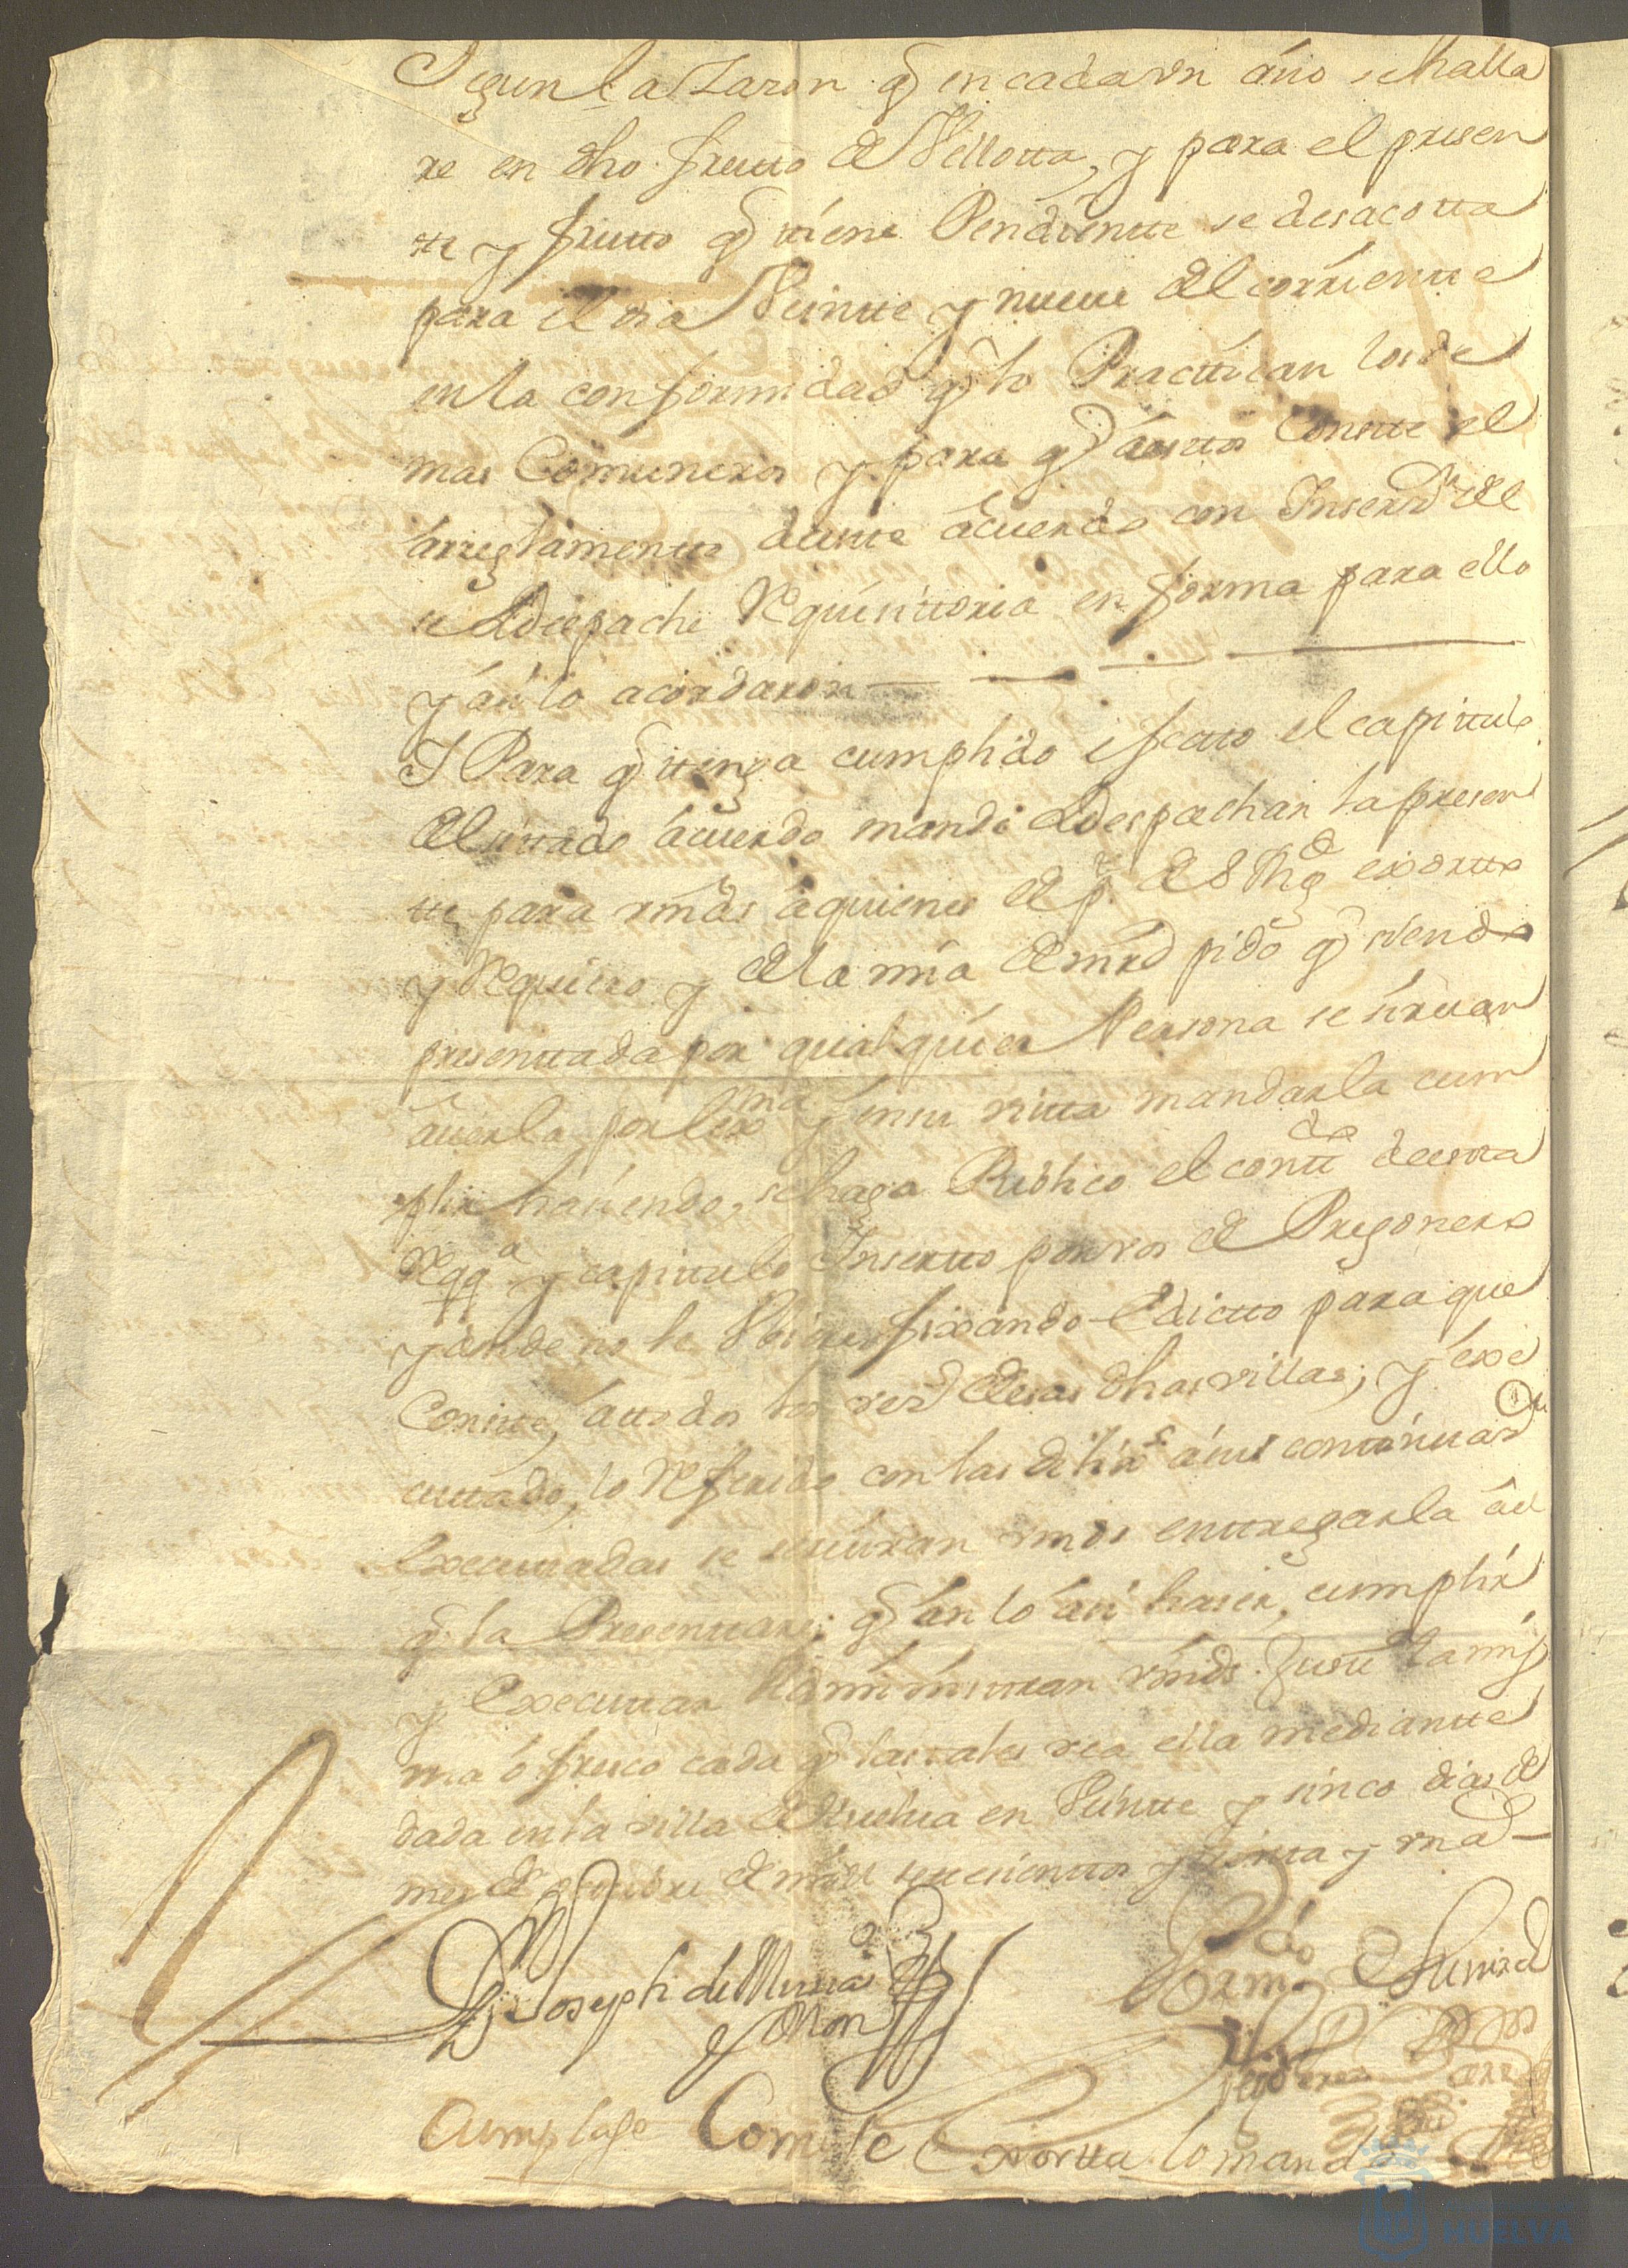 Segun la Zazon q̃ en cada vn año se halla
re en dho frutto de Vellotta, y para el presen
te y frutto q̃ tiene Pendientte se desacotta
para el dia Veintte y nueue del corrientte
en la conformidad q̃ lo Practtican los de
mas Comuneros y para q̃ áestos Constte el
arreglamentto destte ácuerdo con Inserz.n del
se despache Requisittoria en forma para ello
y ási lo acordaron
I Para q̃ ttenga cumplido efectto el capittulo
del cittado ácuerdo mandé despachar la presen
tte para vmds áquienes de p.te de S Mg.d exortto
y Requiero y de la mia de mrd pido q̃ siendo
presenttada por qualquier Persona se siruan
áuerla por lex.ma y en su vistta mandarla cum
plir haziendo, se haga Publico el contt.do de estta
Reqq.a y capittulo Insertto por vos de Pregonero
y donde no le Vbiere fixando Edictto para que
Constte, átodos los vez.s de esas dhas villas; y éxe
cuttado, lo Referido con las dilix.s ásu conttinuaz.on
Executtadas se seruiran vmds enttregarla ál
q̃ la Presenttare; q̃ en lo ási haser, cumplir
y Executtar Administtran vmds Justt.a la mis
ma ófresco cada q̃ las tales vea ella mediantte
dada en la villa de Huelua en Veintte y sinco dias de
mes de octtubre de mill settecienttos y ttreintta y vn ád
D.n Joseph de
y Mon
Por m.do de Su mrd
Cumplase Como se Exortta lo mando
HUELVA